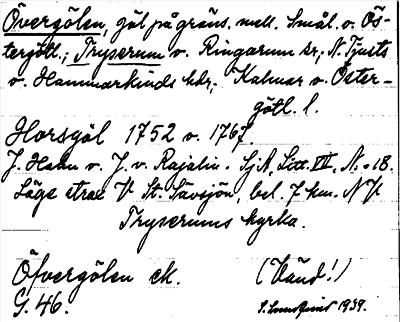 Övergölen, göl på gräns. mell. Smål. o. Ös-
tergötl.; Tryserum o. Ringarum sn; N. Tjusts
o. Hammarkinds hd; Kalmar o. Öster-
götl. l.
Horsgöl 1752 o. 1767
J. Hahn o. J. v. Rajalin. SjA, Litt. VII, N:o 18.
Läge strax V St. Sävsjön, bel. 7 km. NV
Tryserums kyrka.
Öfvergölen ek. (Vänd!)
G. 46. S. Lundquist 1939.